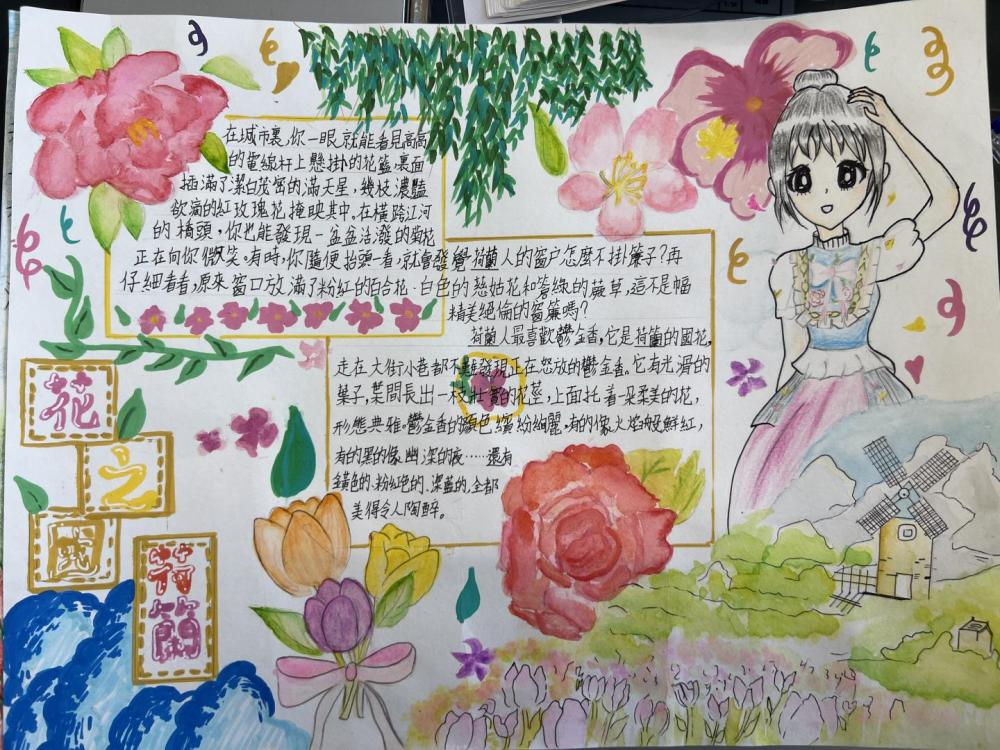 在城市裏,你一眼就能看見高高
的電線杆上懸掛的花籃,裏面
插滿了潔白茂密的滿天星,幾枝濃豔
欲滴的紅玫瑰花掩映其中,在橫跨江河
的橋頭,你也能發現一盆盆活潑的菊花
正在向你微笑。有時,你隨便抬頭一看,就會發覺荷蘭人的窗户怎麼不掛簾子?再
仔細看看,原來窗口放滿了粉紅的百合花、白色的慈姑花和蒼綠的蕨草,這不是幅
精美絕倫的窗簾嗎?
荷蘭人最喜歡鬱金香,它是荷蘭的國花,
走在大街小巷都不難發現正在怒放的鬱金香,它有光滑的
葉子,葉間長出一枝壯實的花莖,上面托着一朵柔美的花,
形態典雅。鬱金香的顏色繽紛絢麗,有的像火焰般鮮紅,
有的黑的像幽深的夜……還有
金黃色的、粉紅色的、深藍的,全都
美得令人陶醉。
花
之
國
荷蘭